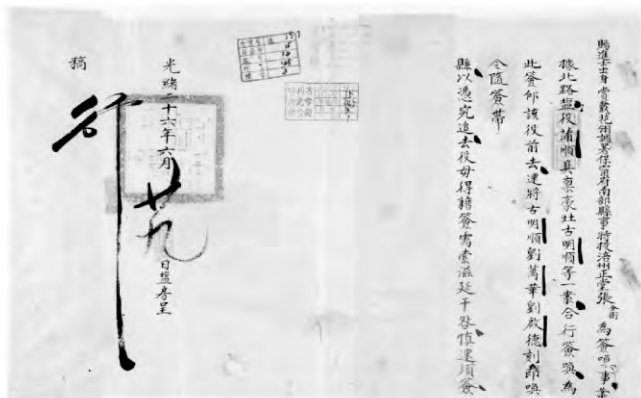 賜進士出身賞戴花翎調署保寧府南部縣事特授涪州正堂張 全銜 為簽喚事案
據北路鹽役蒲順具稟豪灶古明順等一案合行簽喚為
此簽仰該役前去速將古明順劉萬華劉啟德刻即喚
全隨簽帶
縣以憑究追去役毋得藉簽需索滋延干咎慎速須簽
光緒二十六年六月 廿九 日鹽房呈
稿 行